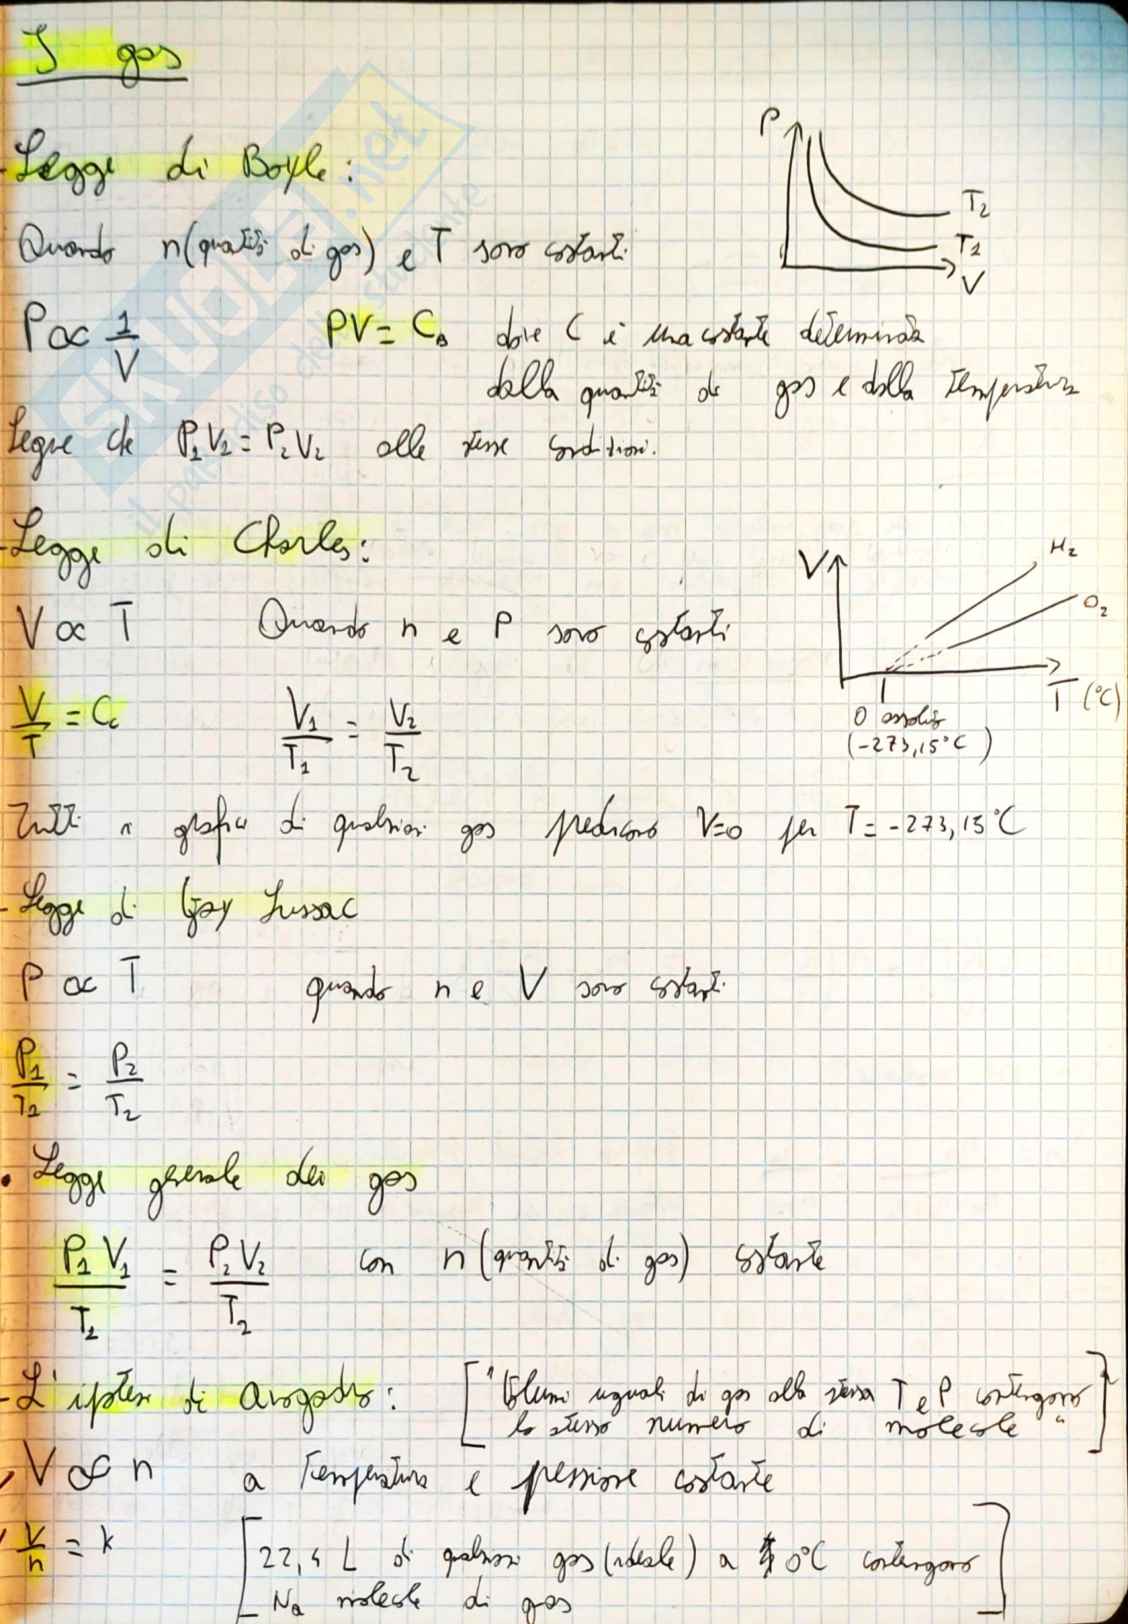 I gas
- Legge di Boyle:
P
T2
T1
V
Quando n (quantità di gas) e T sono costanti
P ∝ 1/V PV = CB dove C è una costante determinata
dalla quantità di gas e dalla temperatura
Segue che P1V1 = P2V2 alle stesse condizioni.
- Legge di Charles:
V
H2
O2
T (°C)
0 assoluto
(-273,15°C)
V ∝ T Quando n e P sono costanti
V/T = Cc V1/T1 = V2/T2
Tutti i grafici di qualsiasi gas predicono V=0 per T = -273,15°C
- Legge di Gay Lussac
P ∝ T quando n e V sono costanti
P1/T1 = P2/T2
• Legge generale dei gas
P1V1/T1 = P2V2/T2 con n (quantità di gas) costante
- L'ipotesi di Avogadro: ["Volumi uguali di gas alla stessa T e P contengono
lo stesso numero di molecole"]
V ∝ n a temperatura e pressione costante
V/n = k [22,4 L di qualsiasi gas (ideale) a 0°C contengono
Na molecole di gas]
SKUOLA.net
il paradiso dello studente